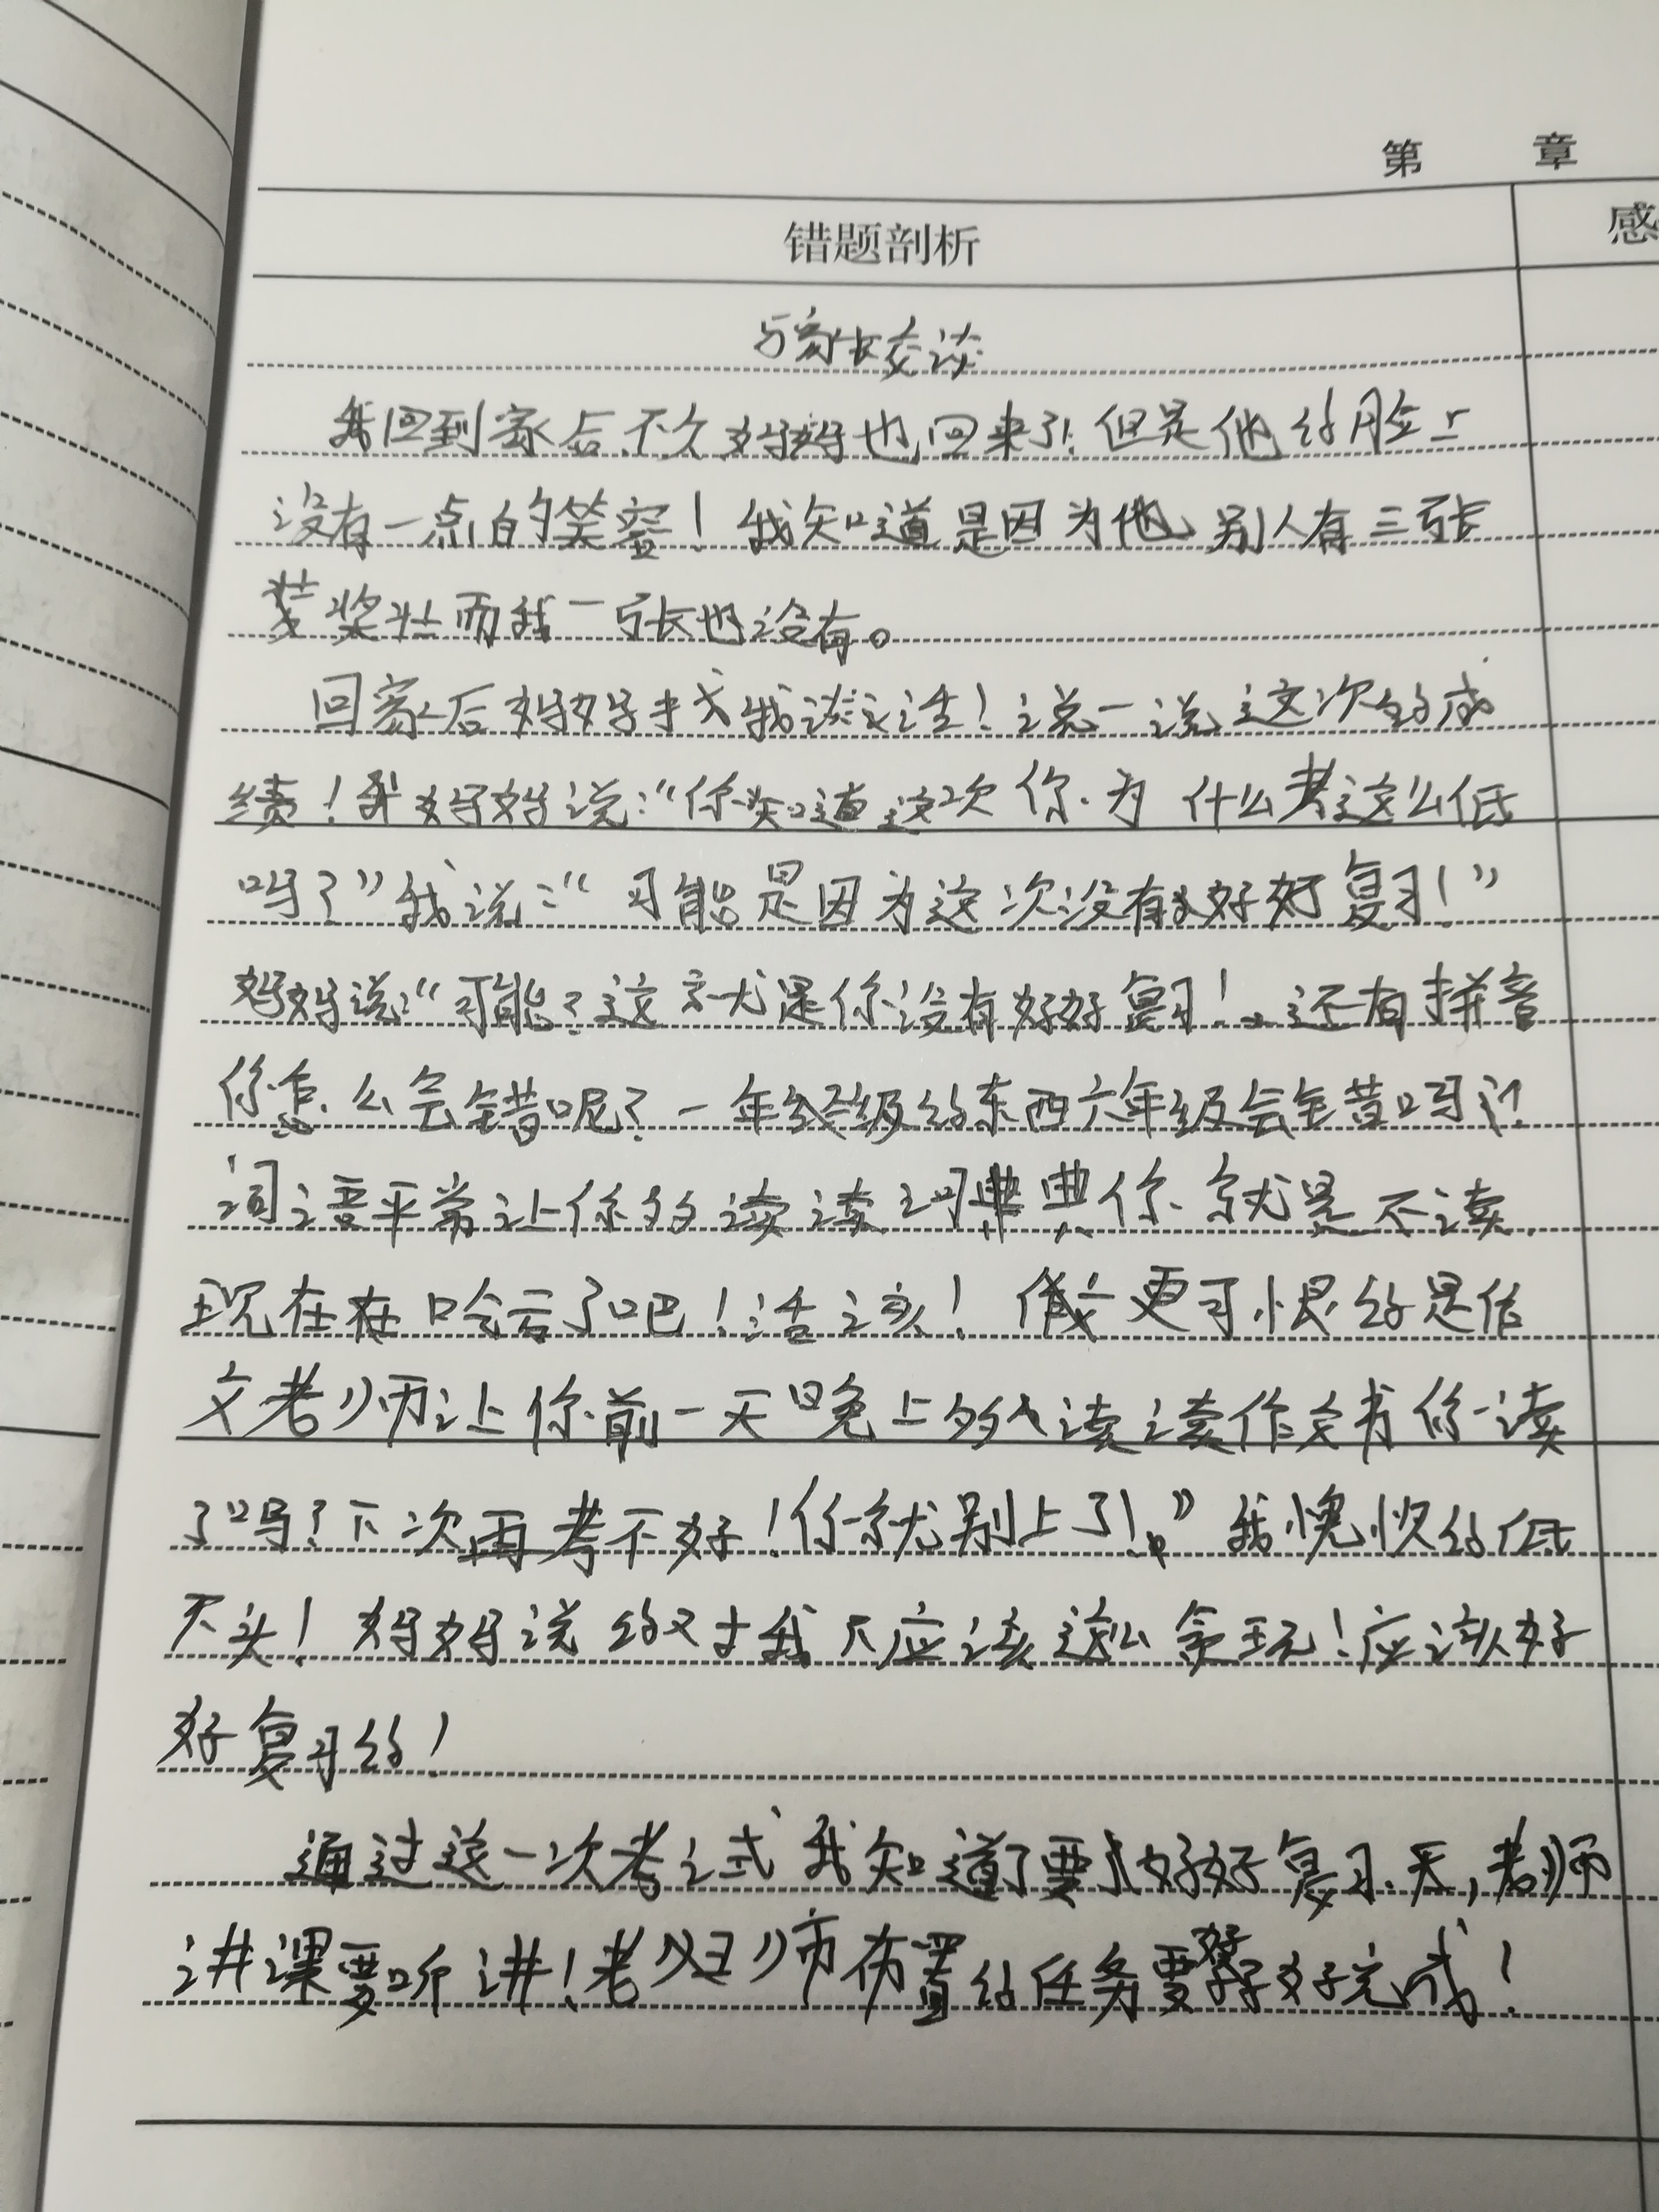 第 章
错题剖析
感
与家长交谈
我回到家后不久妈妈也回来了!但是他的脸上
没有一点的笑容!我知道是因为他别人有三张
奖壮而我一张也没有。
回家后妈妈找我谈话!说一说这次的成
绩!我妈妈说:“你知道这次你为什么考这么低
吗?”我说:“可能是因为这次没有好好复习!”
妈妈说:“可能?这就是你没有好好复习!还有拼音
你怎么会错呢?一年级的东西六年级会错吗?
词语平常让你多读读词典你就是不读
现在在啥云了吧!活该!更可恨的是信
文老师让你前一天晚上多读读作文书你读
了吗?下次再考不好!你就别上了!”我愧恨的低
下头!妈妈说的对我不应该这么贪玩!应该好
好复习的!
通过这一次考试我知道了要好好复习天,老师
讲课要听讲!老师布置的任务要好好完成!